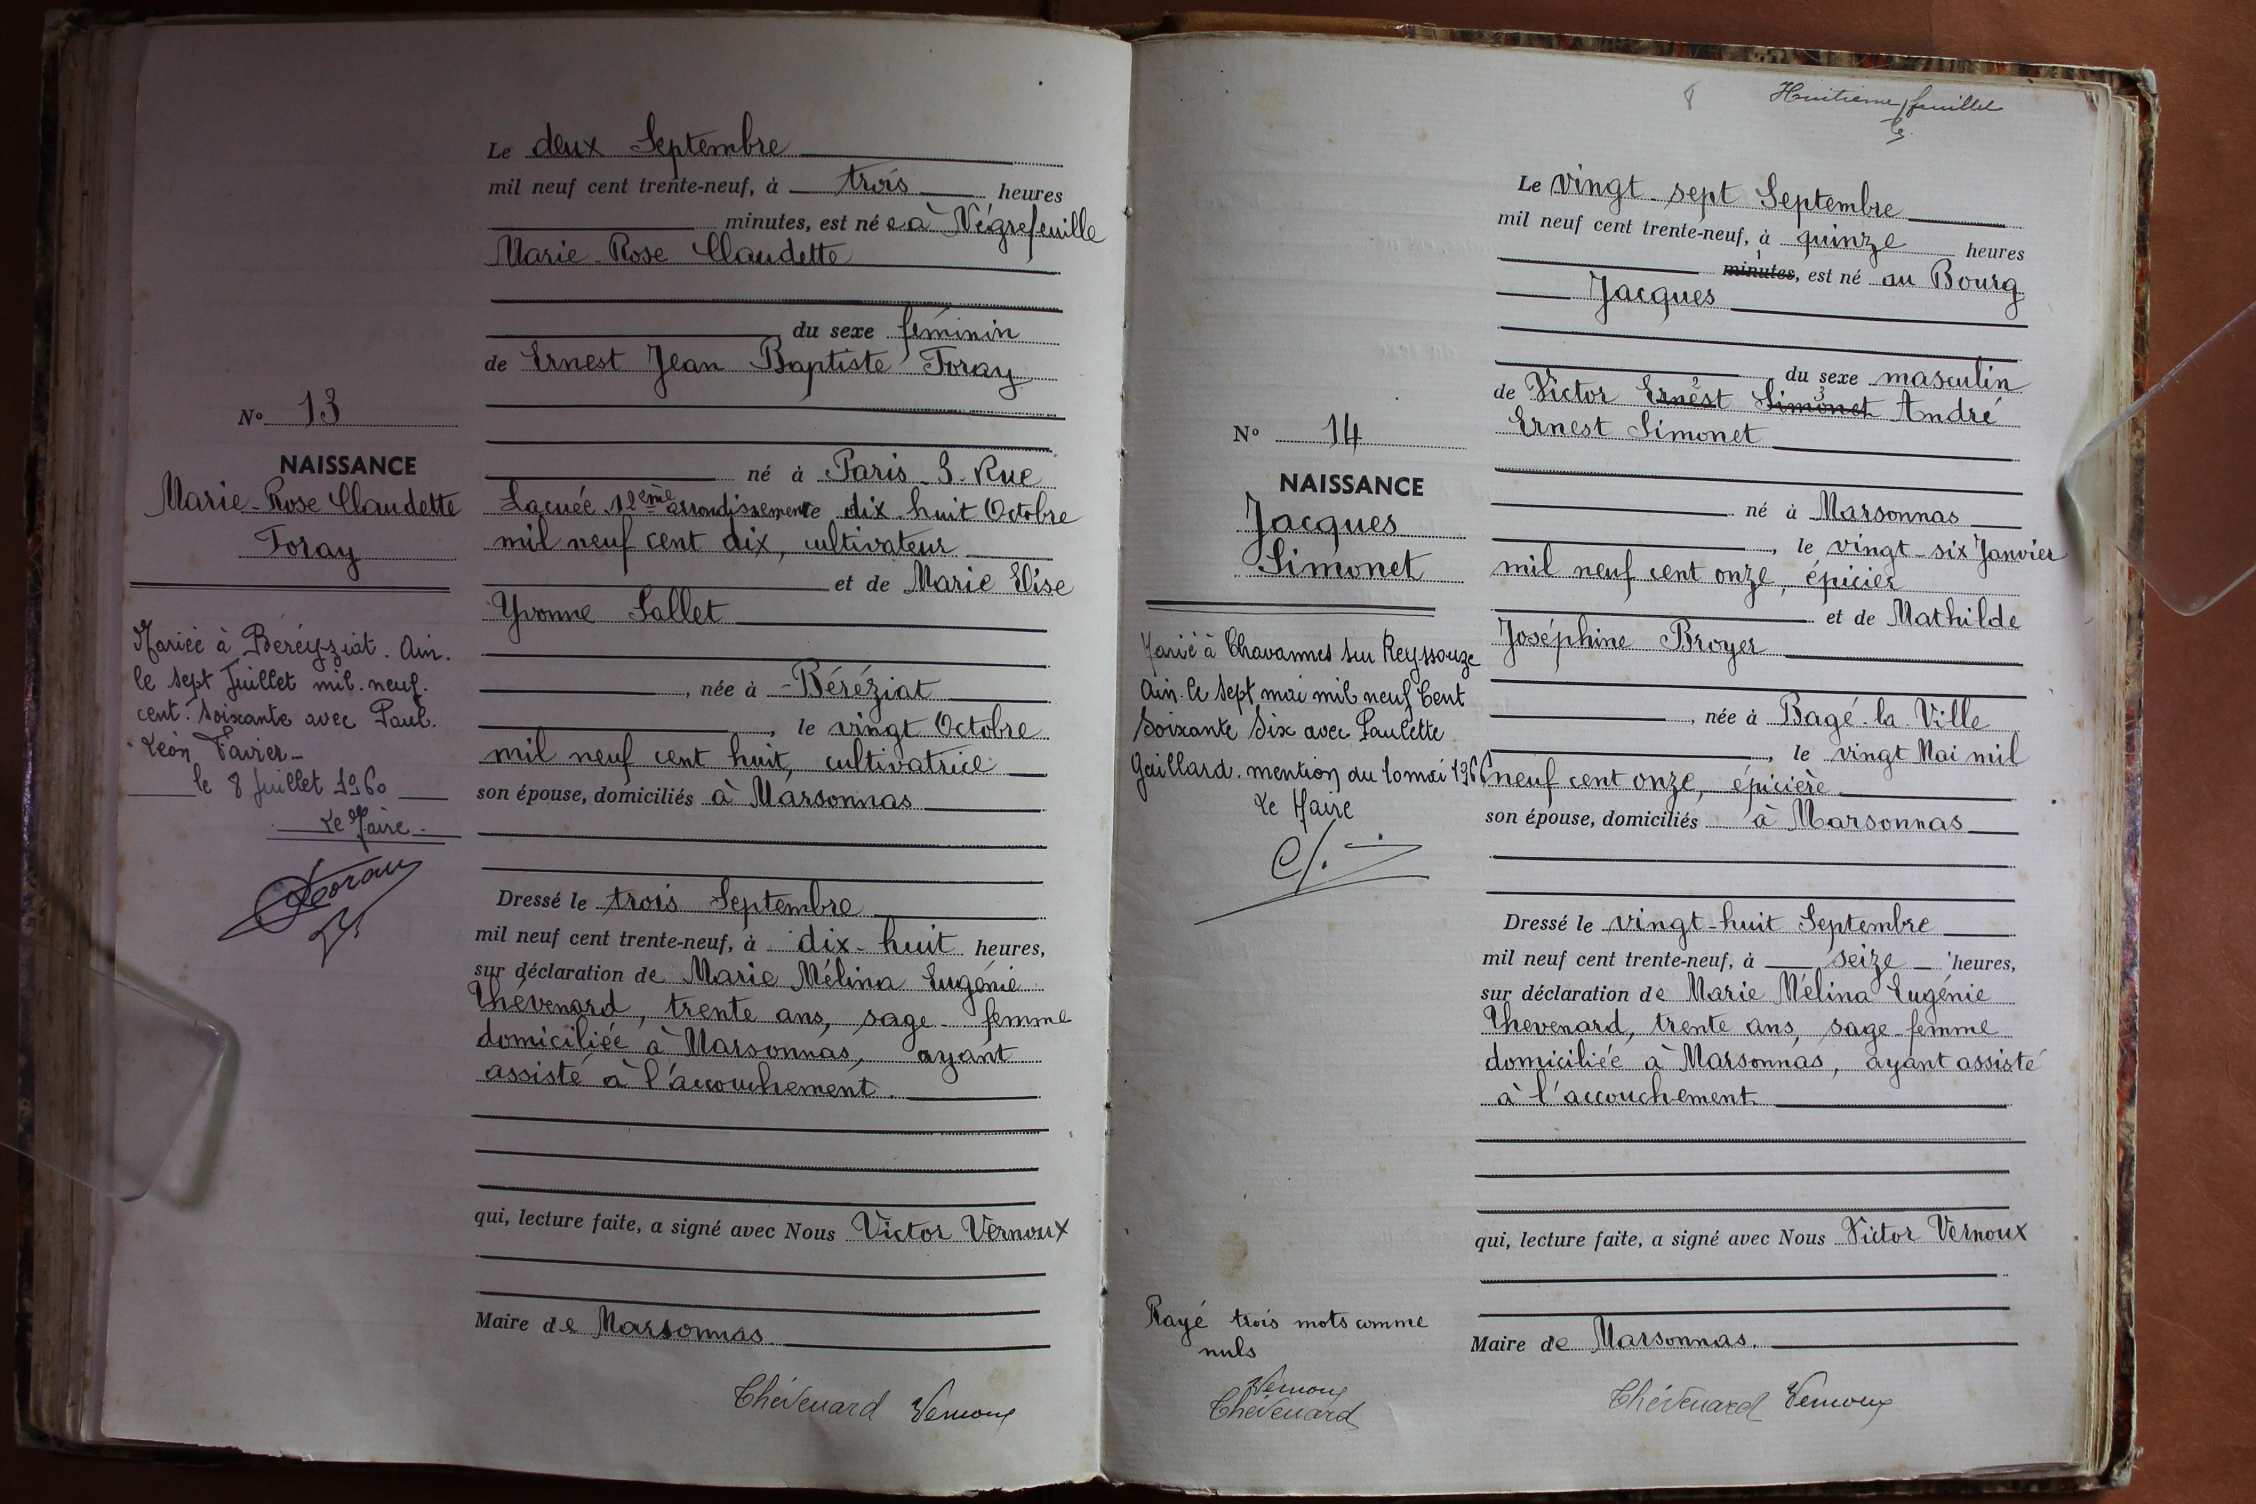 Le deux Septembre
mil neuf cent trente-neuf, à trois heures
minutes, est né e à Végrefeuille
Marie-Rose Claudette
du sexe féminin
de Ernest Jean Baptiste Foray
né à Paris 3 Rue
Lacuée 12ème arrondissement le dix-huit Octobre
mil neuf cent dix, cultivateur
et de Marie Elise
Yvonne Sallet
, née à Béréziat
, le vingt Octobre
mil neuf cent huit, cultivatrice
son épouse, domiciliés à Marsonnas
Dressé le trois Septembre
mil neuf cent trente-neuf, à dix-huit heures,
sur déclaration de Marie Mélina Eugénie
Thévenard, trente ans, sage-femme
domiciliée à Marsonnas, ayant
assisté à l'accouchement.
qui, lecture faite, a signé avec Nous Victor Vernoux
Maire de Marsonnas
Thévenard Vernoux
No 13
NAISSANCE
Marie-Rose Claudette
Foray
Mariée à Béréyziat. Ain.
le sept Juillet mil. neuf.
cent. soixante avec Paul.
Léon Favier-
le 8 Juillet 1960
Le Maire.
Huitième feuillet
8
Le vingt-sept Septembre
mil neuf cent trente-neuf, à quinze heures
minutes, est né au Bourg
Jacques
du sexe masculin
de Victor Ernest Simonet André
Ernest Simonet
né à Marsonnas
, le vingt-six Janvier
mil neuf cent onze, épicier
et de Mathilde
Joséphine Broyer
, née à Bagé-la-Ville
, le vingt Mai mil
neuf cent onze, épicière
son épouse, domiciliés à Marsonnas
Dressé le vingt-huit Septembre
mil neuf cent trente-neuf, à seize heures,
sur déclaration de Marie Mélina Eugénie
Thevenard, trente ans, sage-femme
domiciliée à Marsonnas, ayant assisté
à l'accouchement
qui, lecture faite, a signé avec Nous Victor Vernoux
Maire de Marsonnas.
Thévenard Vernoux
No 14
NAISSANCE
Jacques
Simonet
Marié à Chavannes sur Reyssouze
Ain. le sept mai mil neuf Cent
Soixante Six avec Paulette
Gaillard. mention du 10 mai 1966
Le Maire
Rayé trois mots comme
nuls
Vernoux
Thévenard